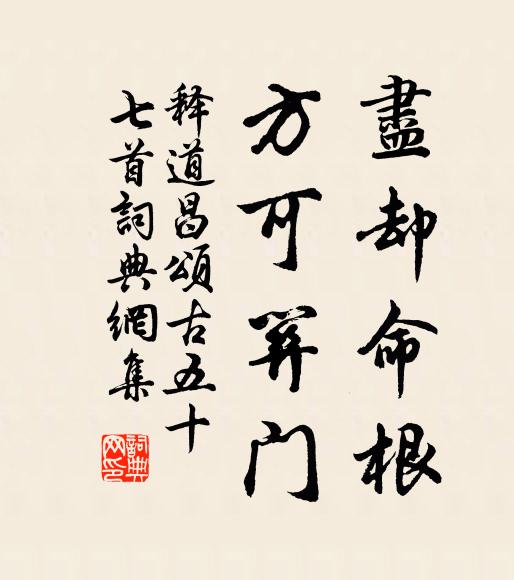 盡却命根
方可笄門
释道昌頌古五十
七首詞典網集
詞典
网印